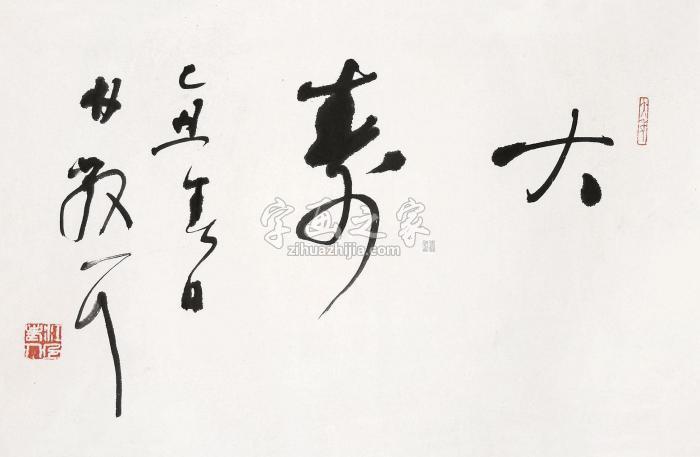 大寿
乙丑春日
林散耳
字画之家
zihuazhijia.com